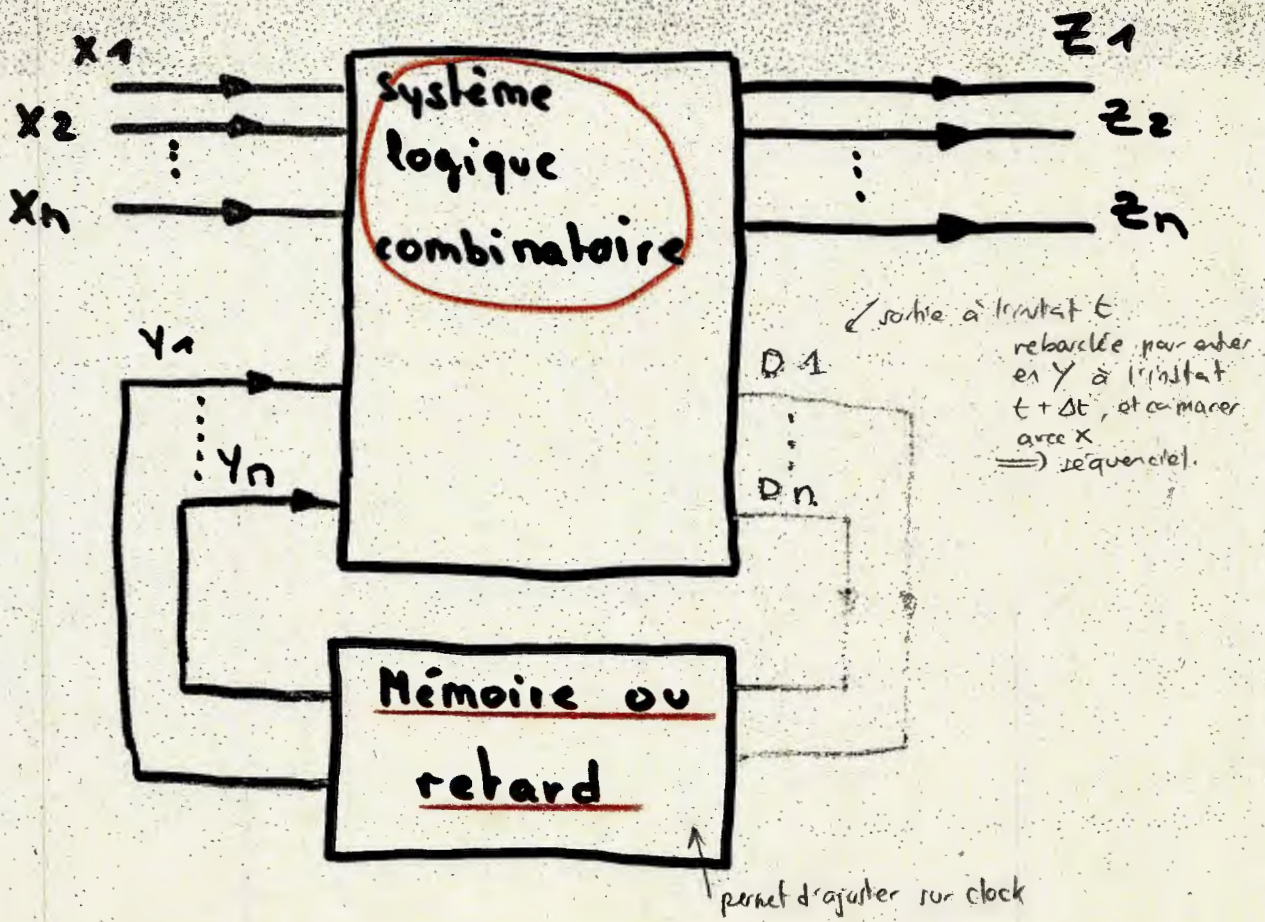 X1
X2
Xn
système
logique
combinatoire
Z1
Z2
Zn
Y1
Yn
D1
Dn
sortie à l'instat t
rebouclée pour entrer
en Y à l'instat
t + Δt, et
avec X
=) séquenciel.
Mémoire ou
retard
permet d'ajuster sur clock